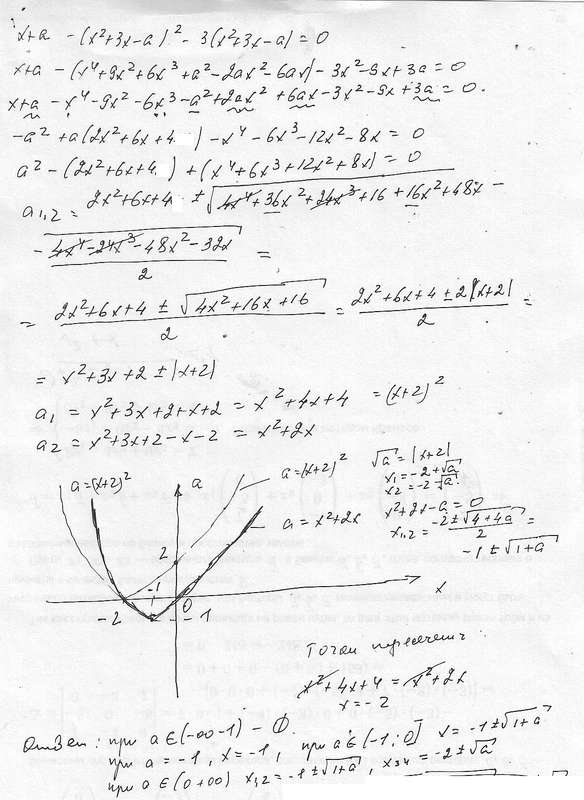 x+a - (x²+3x-a)² - 3(x²+3x-a) = 0
x+a - (x⁴+9x²+6x³+a²-2ax²-6ax) - 3x²-9x+3a = 0
x+a - x⁴-9x²-6x³-a²+2ax²+6ax-3x²-9x+3a = 0.
-a² + a(2x²+6x+4) - x⁴-6x³-12x²-8x = 0
a² - (2x²+6x+4) + (x⁴+6x³+12x²+8x) = 0
a₁,₂ = 2x²+6x+4 ± √4x⁴+36x²+24x³+16+16x²+48x -
- 4x⁴-24x³-48x²-32x =
2
= 2x²+6x+4 ± √4x²+16x+16 / 2 = 2x²+6x+4 ± 2|x+2| / 2 =
= x²+3x+2 ± |x+2|
a₁ = x²+3x+2+x+2 = x²+4x+4 = (x+2)²
a₂ = x²+3x+2-x-2 = x²+2x
a=(x+2)²
a
a=(x+2)²
a = x²+2x
2
-1
-2
0
-1
x
√a = |x+2|
x₁ = -2+√a
x₂ = -2-√a
x²+2x-a = 0
x₁,₂ = -2±√4+4a / 2 =
-1 ± √1+a
Точки пересечен:
x²+4x+4 = x²+2x
x = -2
Ответ: при a∈(-∞-1) - ∅.
при a = -1 x = -1, при a∈(-1;0] x = -1±√1+a
при a∈(0+∞) x₁,₂ = -1±√1+a, x₃,₄ = -2±√a